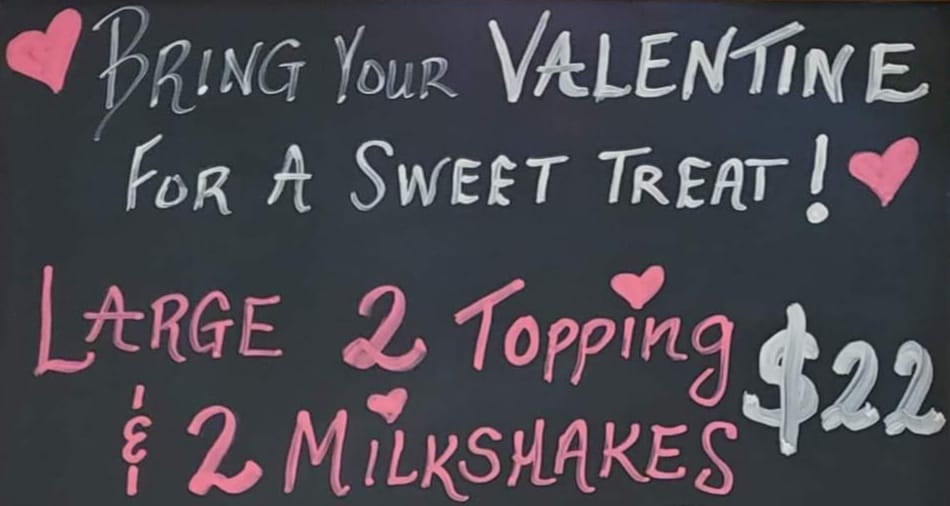 BRING YOUR VALENTINE
FOR A SWEET TREAT!
LARGE 2 TOPPING
& 2 MILKSHAKES $22